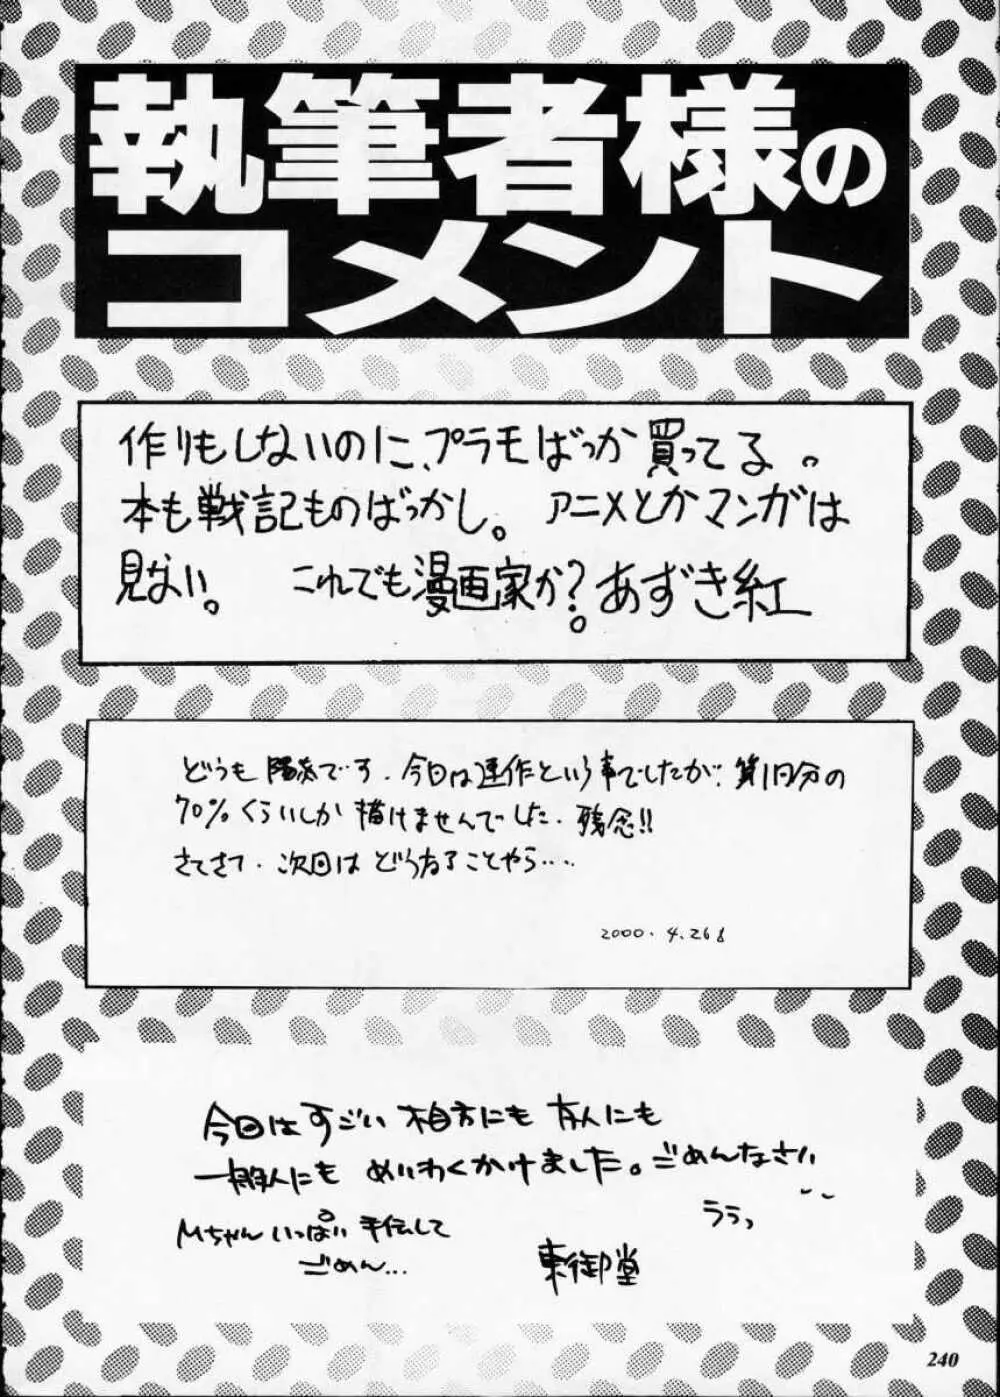 執筆者様の
コメント
作りもしないのに、プラモばっか買ってる。
本も戦記ものばっかし。 アニメとかマンガは
見ない。 これでも漫画家か?。あずき紅
どうも 陽炎です. 今回は連作という事でしたが. 第1回分の
70%くらいしか描けませんでした. 残念!!
さてさて. 次回は どうなることやら....
2000. 4. 26
今回はすごい 相方にも 友人にも
一般人にも めいわくかけました。ごめんなさい
ううっ
Mちゃん いっぱい 手伝して
ごめん...
東御堂
240